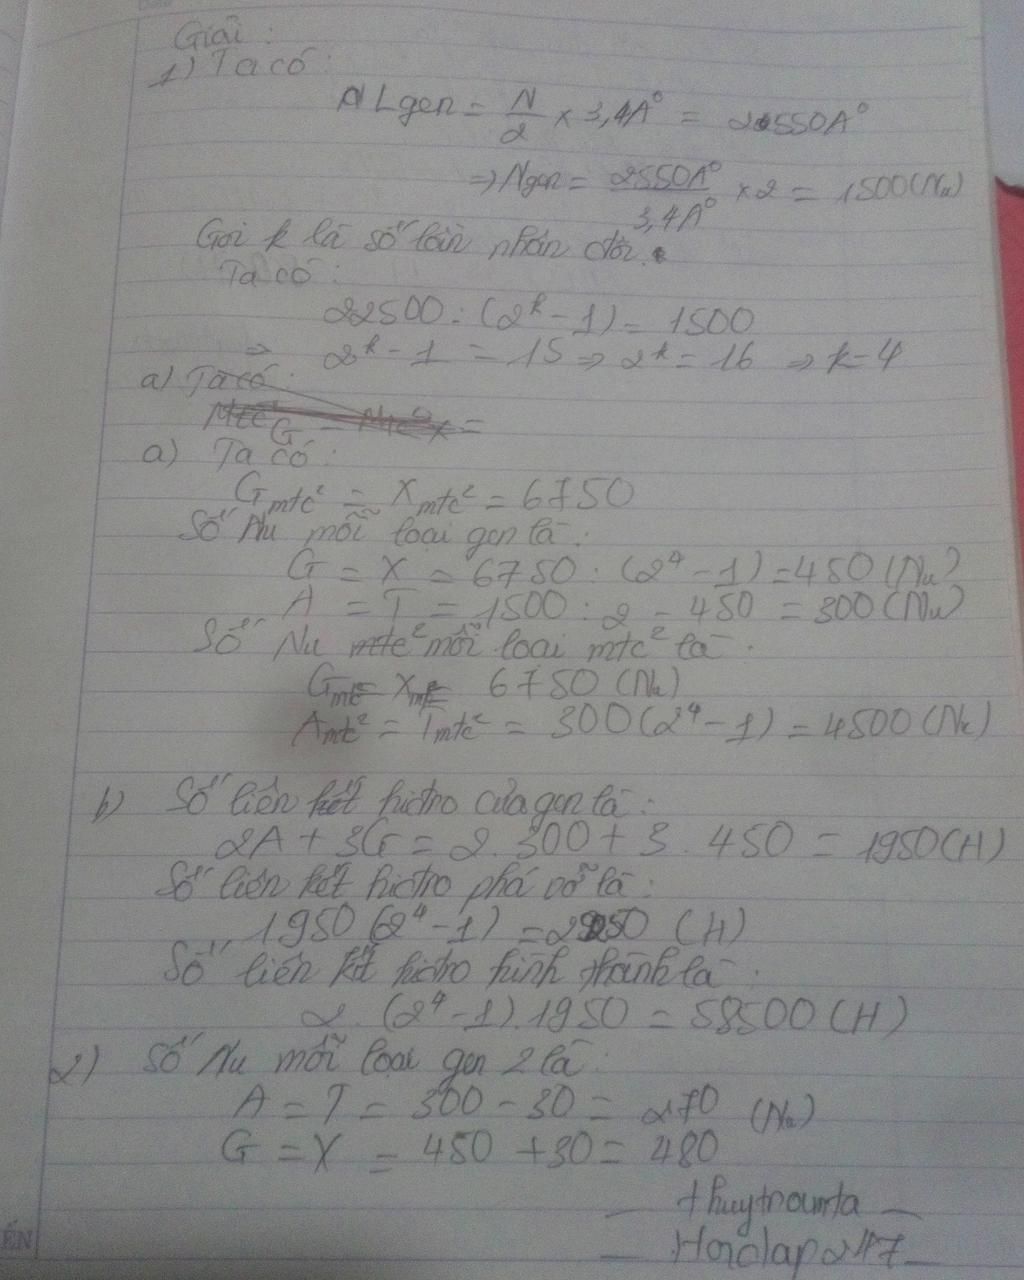 Giải :
1) Ta có :
Lgen = N/2 x 3,4A° = 2550A°
=> Ngen = 2550A°/3,4A° x 2 = 1500 (Nu)
Gọi k là số lần nhân đôi.
Ta có :
22500 : (2^k - 1) = 1500
=> 2^k - 1 = 15 => 2^k = 16 => k = 4
a) Ta có :
a) Ta có :
Gmtc² = Xmtc² = 6750
Số Nu mỗi loại gen là :
G = X = 6750 : (2⁴ - 1) = 450 (Nu)
A = T = 1500 : 2 - 450 = 300 (Nu)
Số Nu mỗi loại mtc² là :
Gmtc = Xmtc = 6750 (Nu)
Amtc² = Tmtc² = 300 (2⁴ - 1) = 4500 (Nu)
b) Số liên kết hidro của gen là :
2A + 3G = 2 . 300 + 3 . 450 = 1950 (H)
Số liên kết hidro phá vỡ là :
1950 (2⁴ - 1) = 29250 (H)
Số liên kết hidro hình thành là :
2 . (2⁴ - 1) . 1950 = 58500 (H)
2) Số Nu mỗi loại gen 2 là :
A = T = 300 - 30 = 270 (Nu)
G = X = 450 + 30 = 480
Hoidap247
ẾN